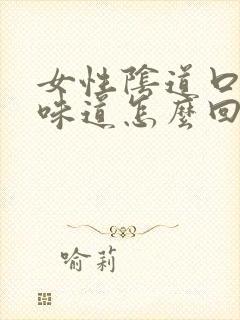 女性陰道口
味道怎麼回
喻莉